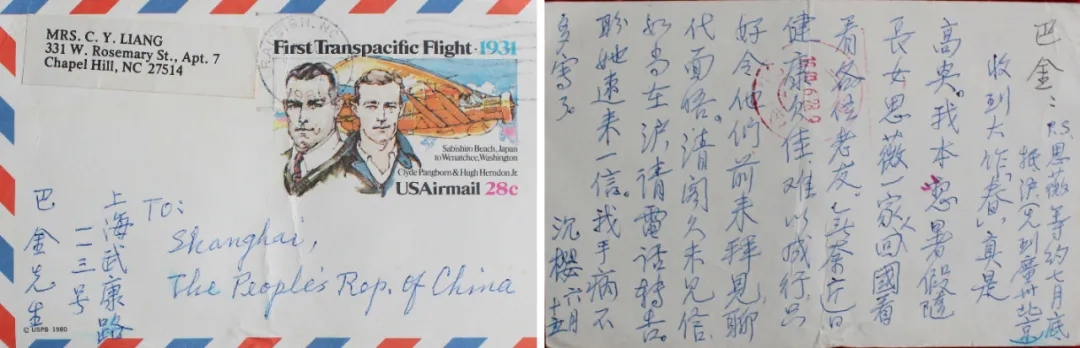 MRS. C. Y. LIANG
331 W. Rosemary St., Apt. 7
Chapel Hill, NC 27514
First Transpacific Flight · 1931
Sabishiro Beach, Japan
to Wenatchee, Washington
Clyde Pangborn & Hugh Herndon Jr.
USAirmail 28c
TO:
Shanghai,
The People's Rep. of China
上海武康路
一一三号
巴金先生
© USPS 1980
巴金:
收到大作「春」真是
高興。我本想暑假隨
長女思薇一家人回國看
看各位老友。無奈近日
健康欠佳,难以成行,只
好令他們前来拜見,聊
代面悟。清閣久未見信,
如尚在沪請電话转告,
盼她速来一信。我手病不
宜寫了
沉櫻 六月十五
P.S. 思薇等约七月底
抵沪(先到廣州北京)